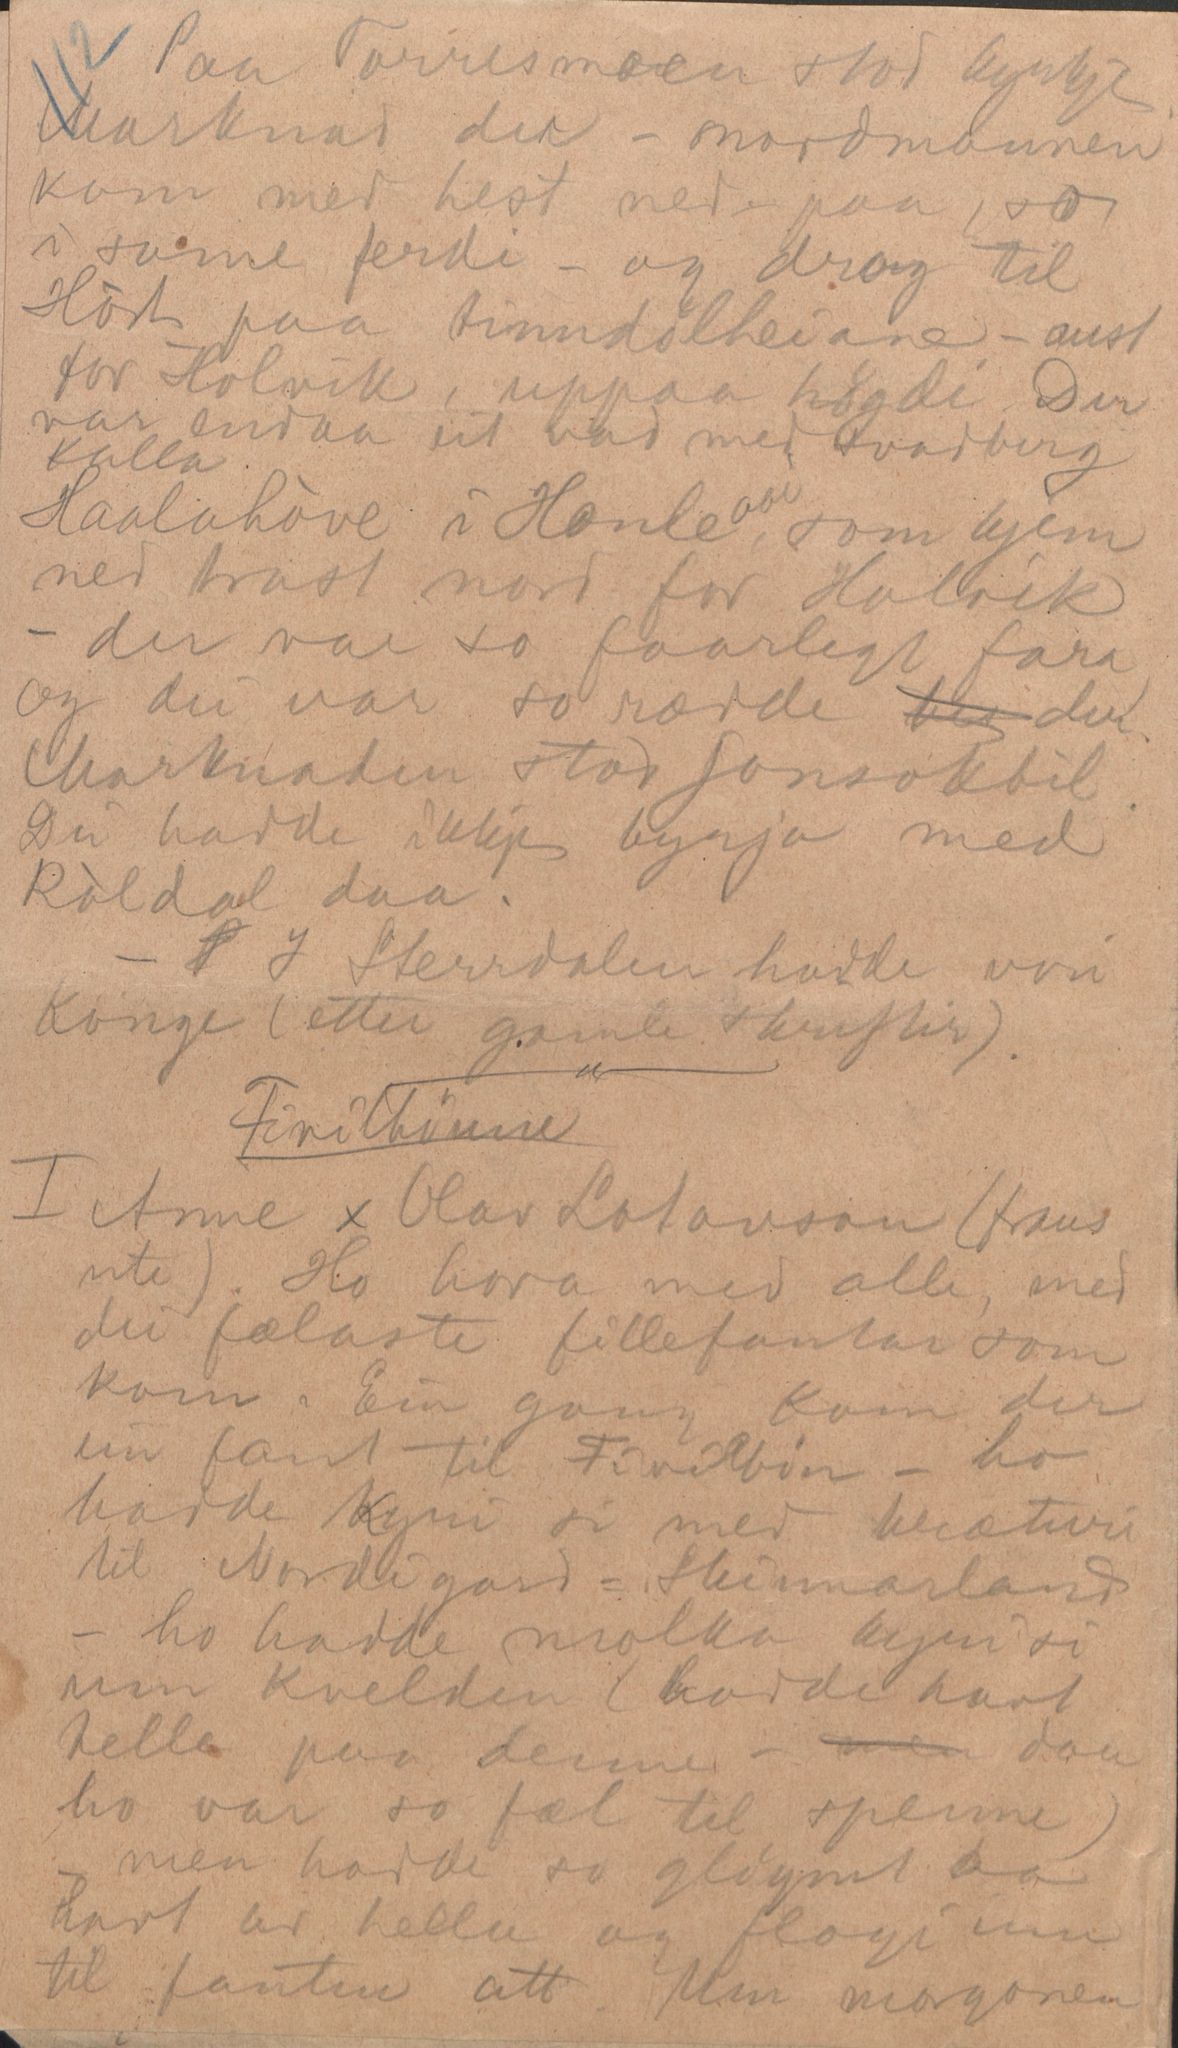 112
Paa Torvesmoen stod kyrkje
Marknad der - nordmannen
kom med hest ned-paa, so
i same ferdi - og drog til
paa tinndølheiane - aust
for Holvik, uppaa høgdi Der
var endaa eit vad med svadberg
kalla
Haaluhòve i Honleaai, som kjem
ned trast nord for Holvik
- der var so faarlegt fara
og dei var so rædde der.
Marknaden stod Jonsokbil.
Dei hadde ikkje byrja med
Ròldal daa.
- I Skerrdalen hadde vori
Konge (etter gamle skrifter).
Firilbònne
I Anne x Olav Lotavson (fraus
ute). Ho hora med alle, med
dei fælaste fillefantar som
kom. Ein gong kom der
ein fant til Firilbòn - ho
hadde kyni si med kræturi
til Nordigard = Skinnarland
- ho hadde molka kyni si
um kvelden (hadde havt
helle paa denne - daa
ho var so fæl til spenne)
- men hadde so gløymt ta
havt av hella og flogi inn
til fanten att. Um morgonen